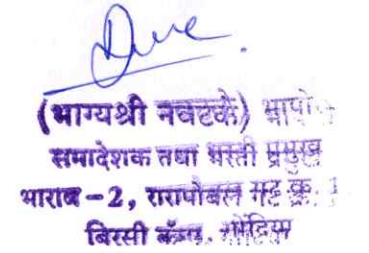 (भाग्यश्री नवटके) भापोसे
समादेशक तथा भरती प्रमुख
भाराब -2, रारापोबल गट क्र.
बिरसी कॅम्प, गोंदिया